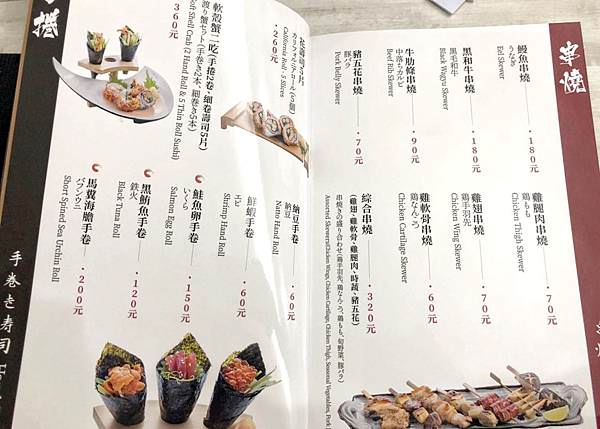 串燒
鰻魚串燒
うなぎ
Eel Skewer
180元
黑和牛串燒
黒毛和牛
Black Wagyu Skewer
180元
牛肋條串燒
中落ちカルビ
Beef Rib Skewer
90元
豬五花串燒
豚バラ
Pork Belly Skewer
70元
雞腿肉串燒
鶏もも
Chicken Thigh Skewer
70元
雞翅串燒
鶏手羽先
Chicken Wing Skewer
70元
雞軟骨串燒
鶏なんこつ
Chicken Cartilage Skewer
60元
綜合串燒
(雞翅、雞軟骨、雞腿肉、時蔬、豬五花)
串焼きの盛り合わせ(鶏手羽先、鶏なんこつ、鶏もも、旬野菜、豚バラ)
Assorted Skewers(Chicken Wings, Chicken Cartilage, Chicken Thigh, Seasonal Vegetables, Pork
320元
手捲
壽司5片
カリフォルニアロール(5個)
California Roll - 5 Slices
260元
軟殼蟹二吃(手捲2卷、細卷壽司5片)
渡り蟹セット(手巻き2本、細巻き5本)
Soft Shell Crab (2 Hand Roll & 5 Thin Roll Sushi)
360元
納豆手卷
納豆
Natto Hand Roll
60元
鮮蝦手卷
エビ
Shrimp Hand Roll
60元
鮭魚卵手卷
いくら
Salmon Egg Roll
150元
黑鮪魚手卷
鉄火
Black Tuna Roll
120元
馬糞海膽手卷
バフンウニ
Short Spined Sea Urchin Roll
200元
手巻き寿司